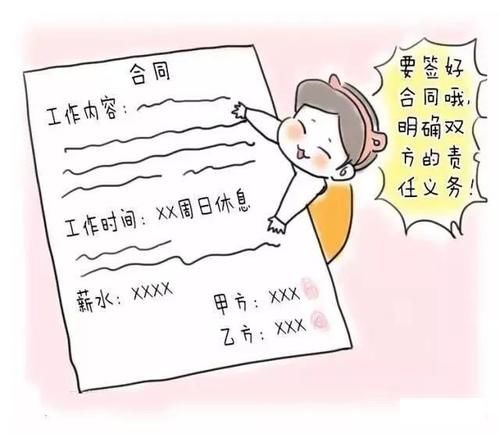 合同
工作内容：
工作时间：XX周日休息
薪水：XXXX
甲方：XXX
乙方：XXX
要签好
合同哦，
明确双
方的责
任义务！